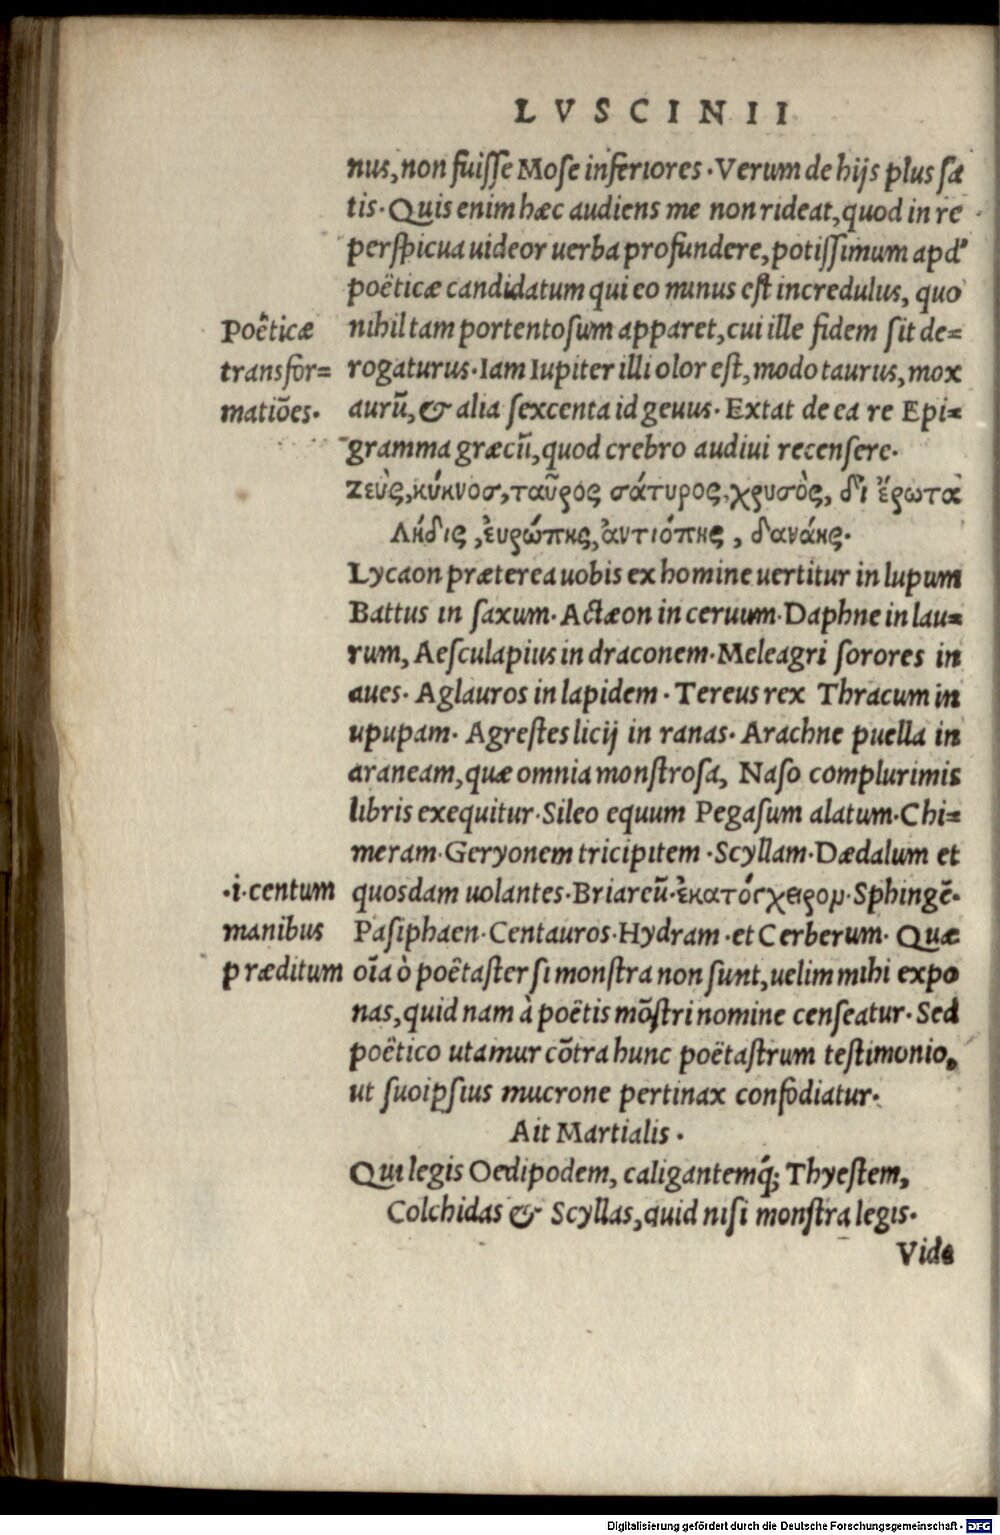 LVSCINII
nus, non fuisse Mose inferiores. Verum de hijs plus sa
tis. Quis enim hæc audiens me non rideat, quod in re
perspicua uideor uerba profundere, potissimum apd'
poëticæ candidatum qui eo minus est incredulus, quo
Poëticæ
nihil tam portentosum apparet, cui ille fidem sit de=
transfor=
rogaturus. Iam Iupiter illi olor est, modo taurus, mox
matiões.
aurũ, & alia sexcenta id genus. Extat de ea re Epi=
gramma græcũ, quod crebro audiui recensere.
Ζεὺς, κύκνοσ, ταῦρος σάτυρος, χρυσὸς, δι ἔρωτα
Λήδις, ἐυρώπης, ἀντιόπης, δανάης.
Lycaon præterea uobis ex homine uertitur in lupum
Battus in saxum. Actæon in ceruum. Daphne in lau=
rum, Aesculapius in draconem. Meleagri sorores in
aues. Aglauros in lapidem. Tereus rex Thracum in
upupam. Agrestes licij in ranas. Arachne puella in
araneam, quæ omnia monstrosa, Naso complurimis
libris exequitur. Sileo equum Pegasum alatum. Chi=
meram. Geryonem tricipitem. Scyllam. Dædalum et
.i. centum
quosdam uolantes. Briareũ. ἑκατόγχειρομ. Sphingẽ.
manibus
Pasiphaen. Centauros. Hydram. et Cerberum. Quæ
præditum
oĩa ò poëtaster si monstra non sunt, uelim mihi expo
nas, quid nam à poëtis mõstri nomine censeatur. Sed
poëtico utamur cõtra hunc poëtastrum testimonio,
ut suoipsius mucrone pertinax confodiatur.
Ait Martialis.
Qui legis Oedipodem, caligantemq; Thyestem,
Colchidas & Scyllas, quid nisi monstra legis.
Vide
Digitalisierung gefördert durch die Deutsche Forschungsgemeinschaft - DFG